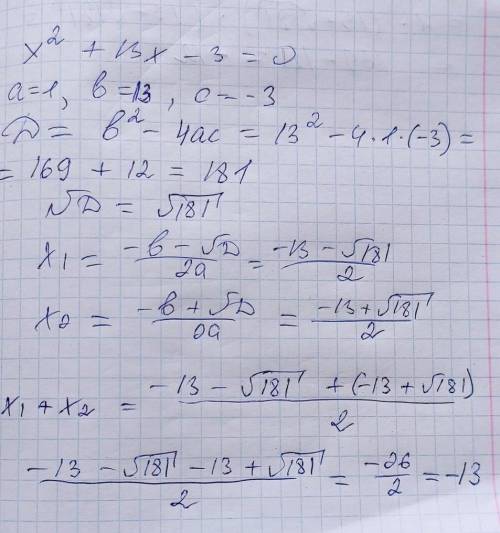 x² + 13x - 3 = 0
a=1, b=13, c=-3
D = b² - 4ac = 13² - 4·1·(-3) =
= 169 + 12 = 181
√D = √181
x₁ = (-b - √D)/2a = (-13 - √181)/2
x₂ = (-b + √D)/2a = (-13 + √181)/2
x₁ + x₂ = (-13 - √181 + (-13 + √181))/2
(-13 - √181 - 13 + √181)/2 = -26/2 = -13